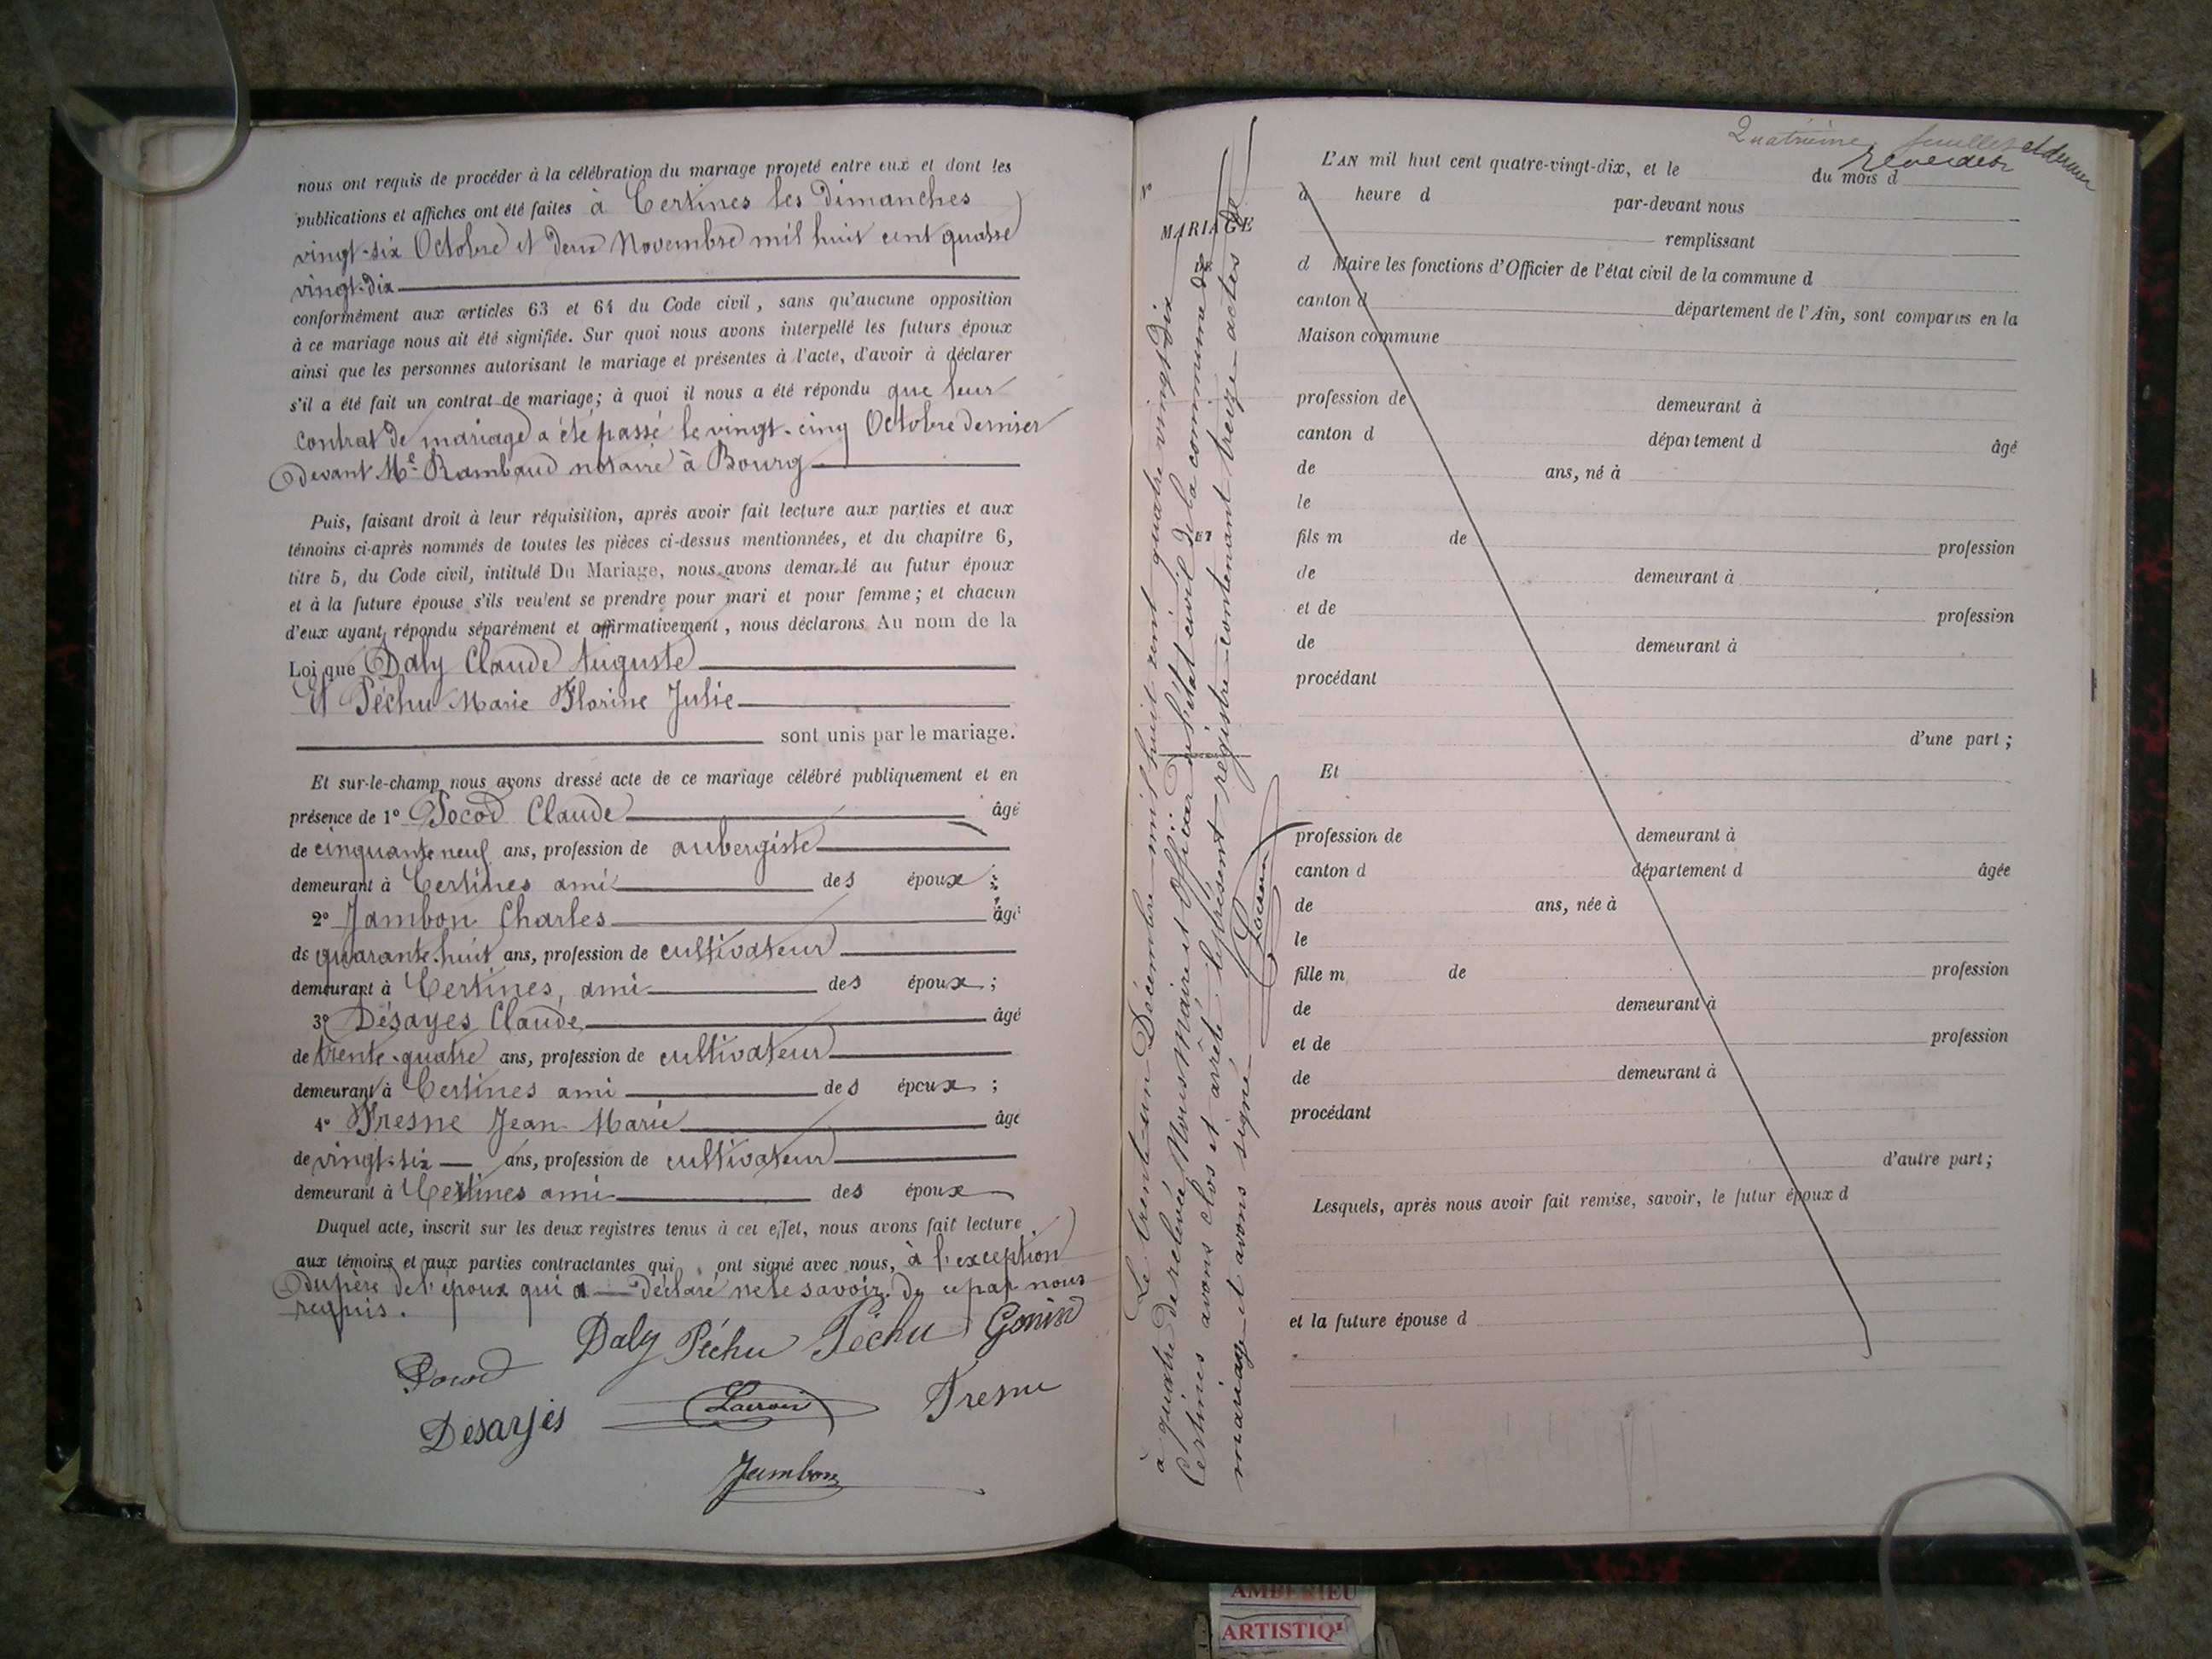 nous ont requis de procéder à la célébration du mariage projeté entre eux et dont les
publications et affiches ont été faites à Certines les Dimanches
vingt-six Octobre et deux Novembre mil huit cent quatre
vingt-dix
conformément aux articles 63 et 64 du Code civil, sans qu'aucune opposition
à ce mariage nous ait été signifiée. Sur quoi nous avons interpellé les futurs époux
ainsi que les personnes autorisant le mariage et présentes à l'acte, d'avoir à déclarer
s'il a été fait un contrat de mariage; à quoi il nous a été répondu que leur
contrat de mariage a été passé le vingt-cinq Octobre dernier
devant Me Rambaud notaire à Bourg
Puis, faisant droit à leur réquisition, après avoir fait lecture aux parties et aux
témoins ci-après nommés de toutes les pièces ci-dessus mentionnées, et du chapitre 6,
titre 5, du Code civil, intitulé Du Mariage, nous avons demandé au futur époux
et à la future épouse s'ils veulent se prendre pour mari et pour femme; et chacun
d'eux ayant répondu séparément et affirmativement, nous déclarons Au nom de la
Loi que Daly Claude Auguste
Et Péchu Marie Florine Julie
sont unis par le mariage.
Et sur-le-champ nous avons dressé acte de ce mariage célébré publiquement et en
présence de 1° Pocod Claude âgé
de cinquante neuf ans, profession de aubergiste
demeurant à Certines ami des époux ;
2° Jambon Charles âgé
de quarante-huit ans, profession de cultivateur
demeurant à Certines, ami des époux ;
3° Désayes Claude âgé
de trente-quatre ans, profession de cultivateur
demeurant à Certines ami des époux ;
4° Fresne Jean Marie âgé
de vingt-six ans, profession de cultivateur
demeurant à Certines ami des époux
Duquel acte, inscrit sur les deux registres tenus à cet effet, nous avons fait lecture
aux témoins et aux parties contractantes qui ont signé avec nous, à l'exception
du père de l'époux qui a déclaré ne le savoir. De ce par nous
requis.
Daly Péchu Péchu Gonin
Pocod
Lacroix
Fresne
Désayes
Jambon
Quatrième feuillet et dernier
N°
MARIAGE
ET
Le trente-un Décembre mil huit cent quatre vingt dix
à quatre de relevée, Nous Maire et Officier de l'état civil de la commune de
Certines avons clos et arrêté le présent registre contenant treize actes de
mariage et avons signé
Lacroix
L'AN mil huit cent quatre-vingt-dix, et le du mois d
à heure d par-devant nous
remplissant
d Maire les fonctions d'Officier de l'état civil de la commune d
canton d département de l'Ain, sont comparus en la
Maison commune
profession de demeurant à
canton d département d âgé
de ans, né à
le
fils m de profession
de demeurant à
et de profession
de demeurant à
procédant
d'une part ;
Et
profession de demeurant à
canton d département d âgée
de ans, née à
le
fille m de profession
de demeurant à
et de profession
de demeurant à
procédant
d'autre part ;
Lesquels, après nous avoir fait remise, savoir, le futur époux d
et la future épouse d
AMBERIEU
ARTISTIQ